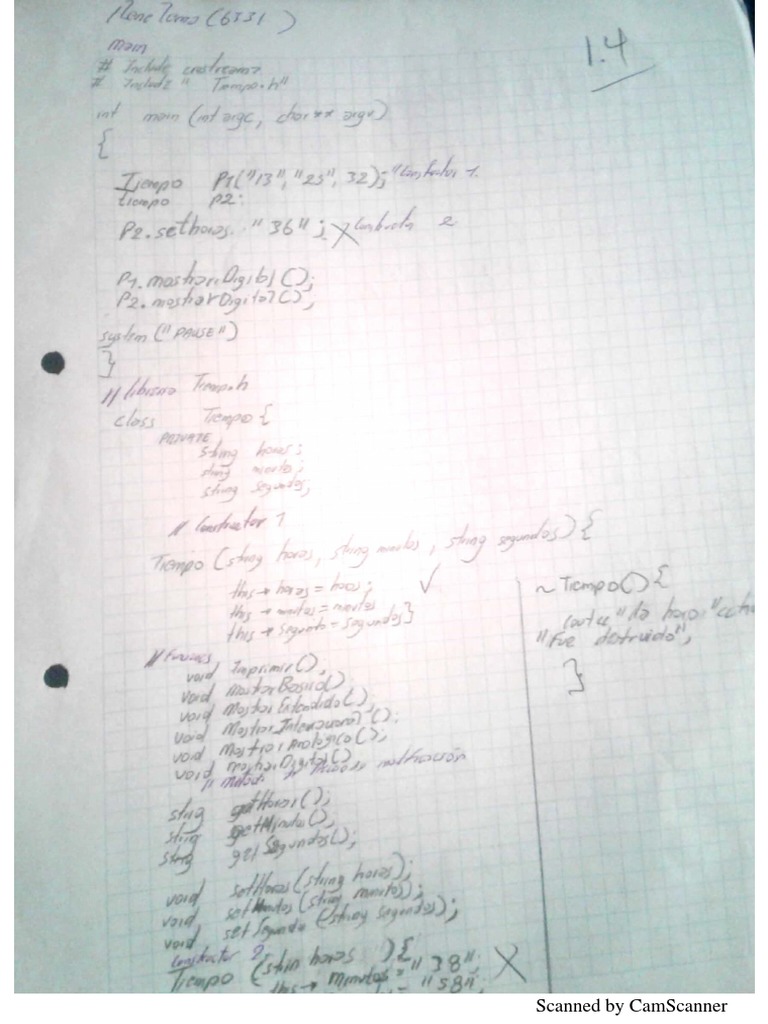 (6331)
1.4
main
# Include <iostream>
# Include " Tiempo.h"
int main (int argc, char** argv)
{
Tiempo P1("13", "25", 32); "Constructor 1.
tiempo P2:
P2.sethoras. "36" ; X 2
P1.mostrarDigital();
P2.mostrarDigital();
system ("PAUSE")
}
// libreria Tiempo.h
class Tiempo {
PRIVATE
string horas;
string minutos;
string segundos;
// Constructor 1
Tiempo (string horas, string minutos, string segundos) {
this → horas = horas; ✓
this → minutos = minutos
this → segundo = segundos}
~ Tiempo() {
cout << "la hora: "
"fue destruido";
}
// Funciones
void Imprimir();
void MostarBasico();
void MostarExtendido();
void MostarInternacional();
void Mostrar Analogico();
void mostrarDigital()
modificación
string getHoras();
string getMinutos();
string getSegundos();
void setHoras (string horas);
void setMinutos (string minutos);
void setSegundo (string segundos);
Constructor 2
Tiempo (strin horas ) {
this → Minutos = "38"; X
"58";
Scanned by CamScanner